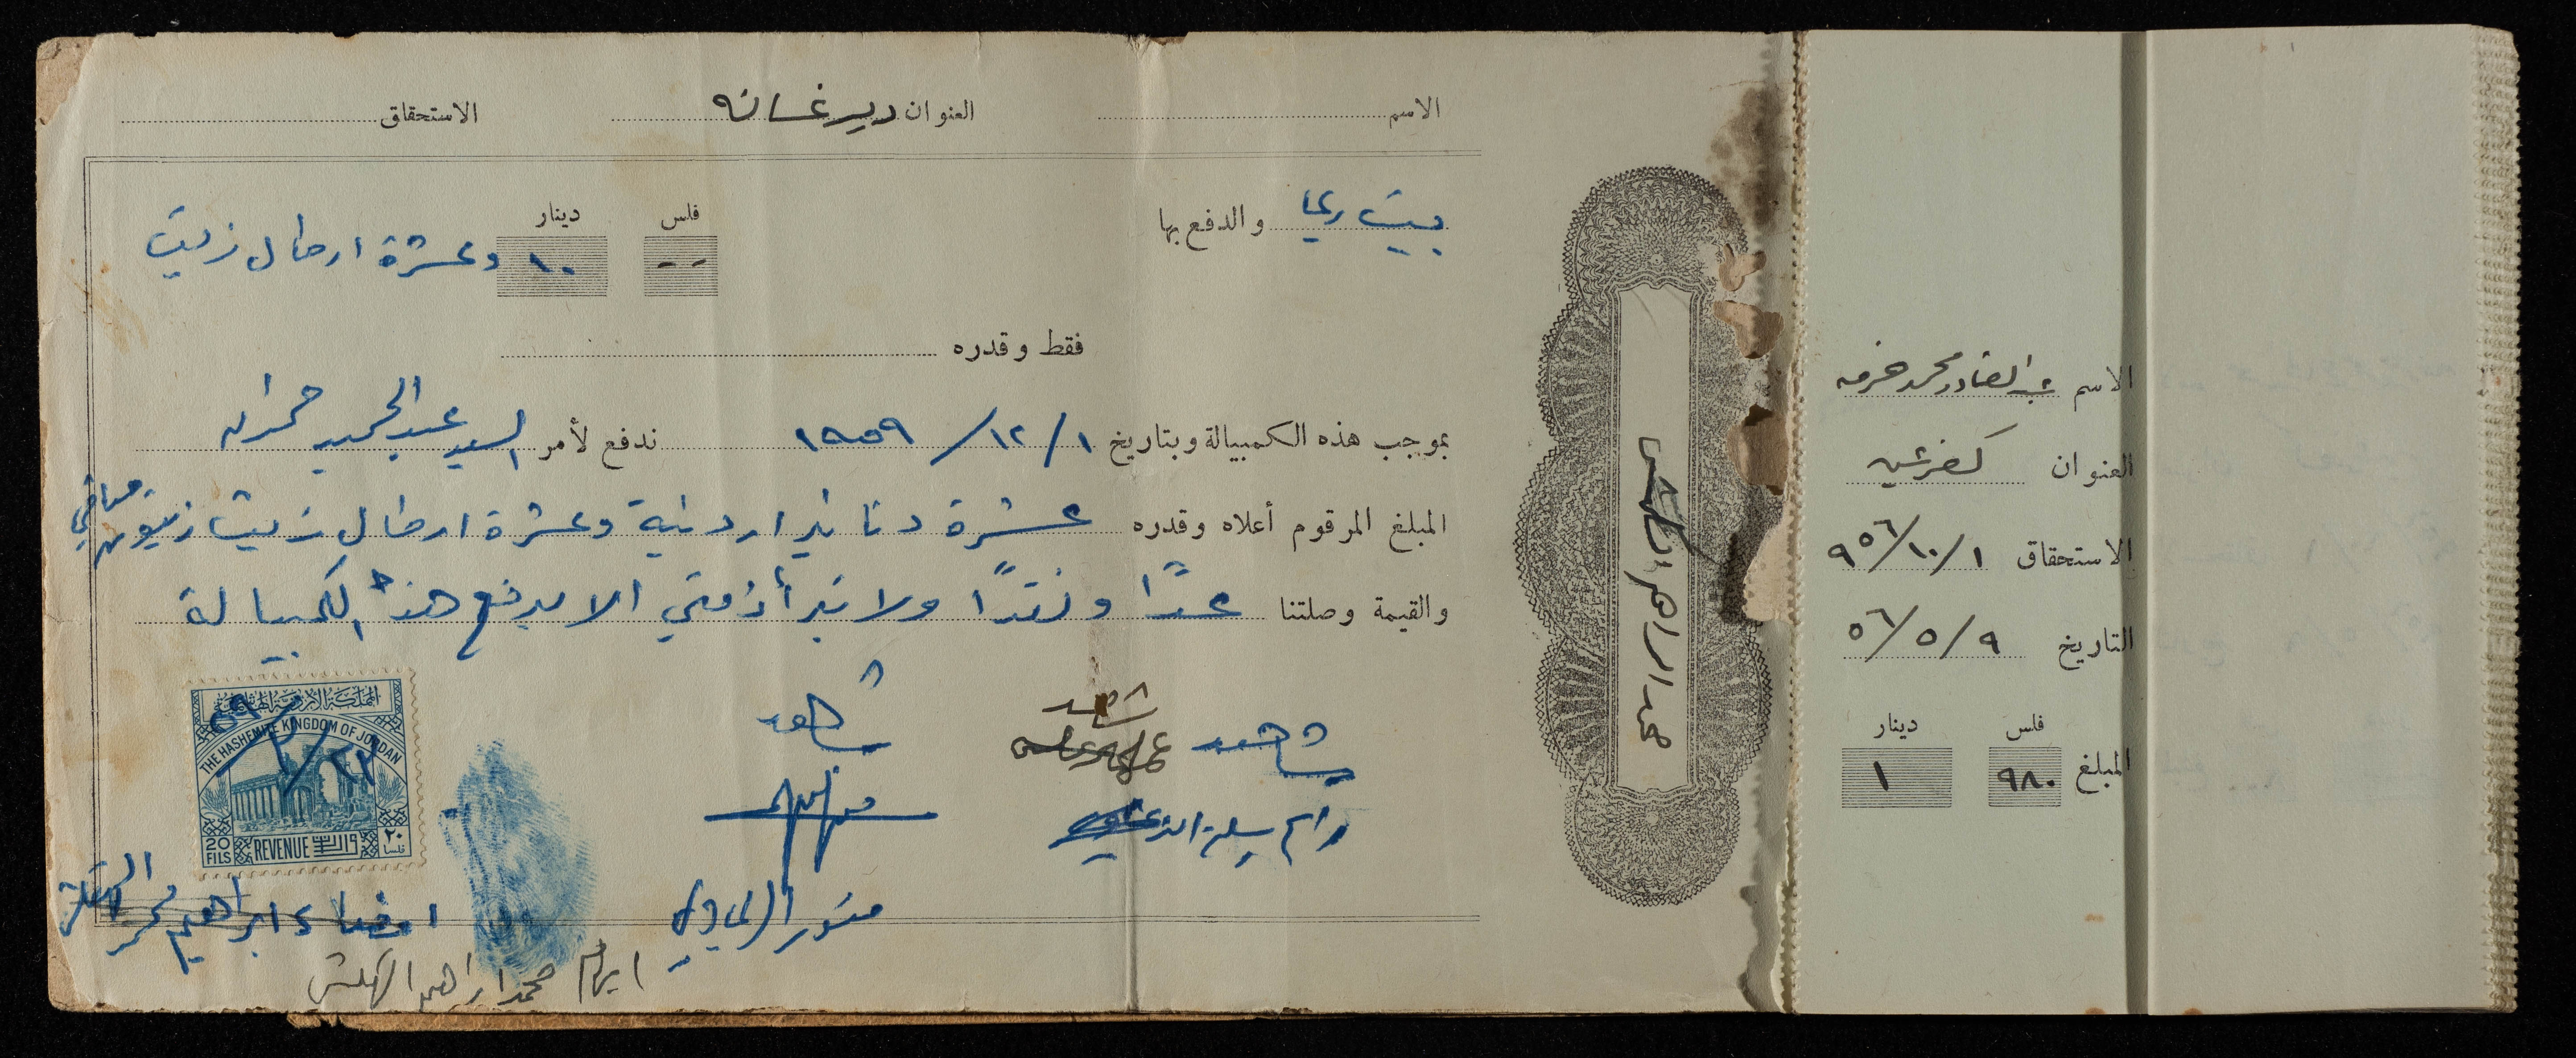 الاسم العنوان دير غسانه الاستحقاق
بيت ريما والدفع بها
فلس دينار
-- ١٠ وعشرة ارطال زيت
فقط وقدره
بموجب هذه الكمبيالة وبتاريخ ١/ ١٢/ ١٩٥٩ ندفع لأمر السيد عبد الحميد حمدان
المبلغ المرقوم أعلاه وقدره عشرة دنانير اردنية وعشرة ارطال زيت زيتون صافي
والقيمة وصلتنا عدًا ونقدًا ولا تبرأ ذمتي الا بدفع هذه الكمبيالة
شاهد شاهد شاهد
المملكة الأردنية الهاشمية
THE HASHEMITE KINGDOM OF JORDAN
20 FILS REVENUE واردات ٢٠ فلسا
امضاء ابراهيم محمد
محمد ابراهيم
الاسم عبد القادر محمد
العنوان كفر عين
الاستحقاق ١/ ١٠/ ٩٥٦
التاريخ ٩/ ٥/ ٥٦
فلس دينار
المبلغ ٩٨٠ ١